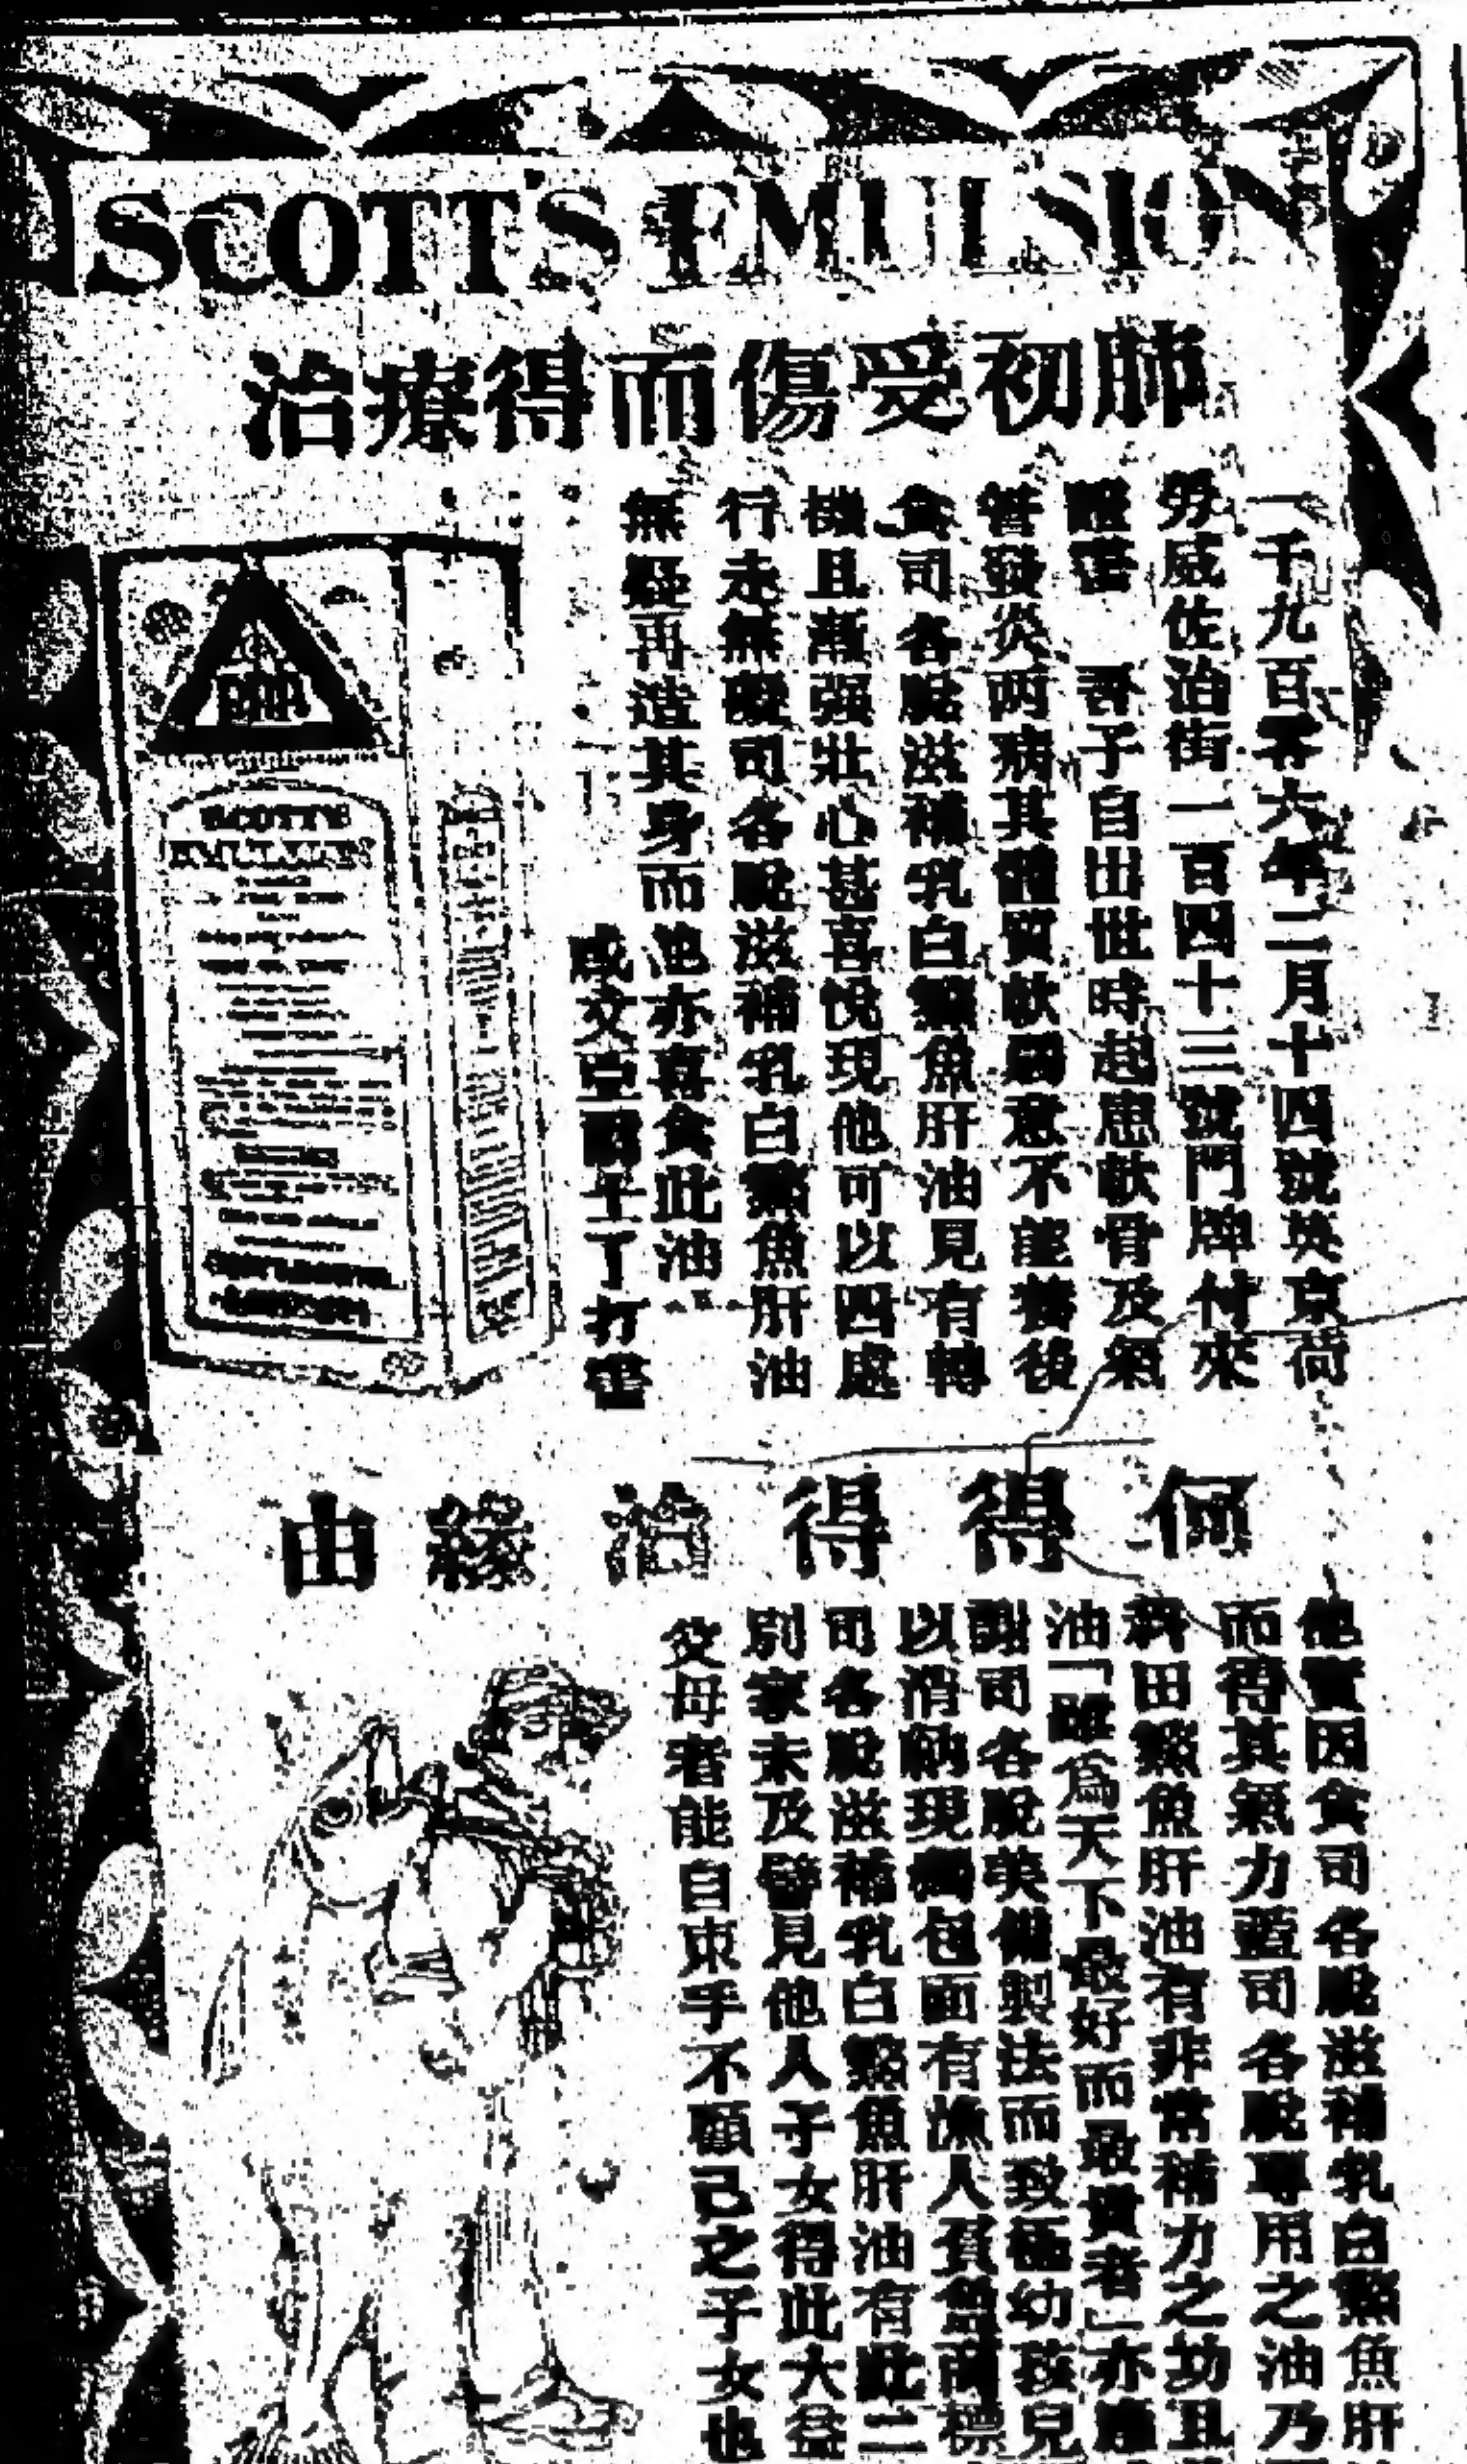 SCOTT'S EMULSION
肺初受傷而得療治
一千九百零六年二月十四號英京荷
勞威佐治街一百四十三號門牌付來
吾子自出世時起患軟骨及氣
管發炎两病其體質軟弱意不能養後
食司各脫滋補乳白鰵魚肝油見有轉
機且漸强壯心甚喜悅現他可以四處
行走無礙司各脫滋補乳白鰵魚肝油
無疑再造其身而他亦喜食此油
SCOTT'S
何得得治緣由
他實因食司各脫滋補乳白鰵魚肝
而得其氣力藍司各脫專用之油乃
田鰵魚肝油有非常補力之功且
油「雖爲天下最好而最貴者」亦應
謝司各脫美備製法而致極幼孩兒
以消納現獨包面有漁人負魚商標
司各脫滋補乳白鰵魚肝油有此二
別家未及嘗見他人子女得此大益
父母者能自束手不顧己之子女也